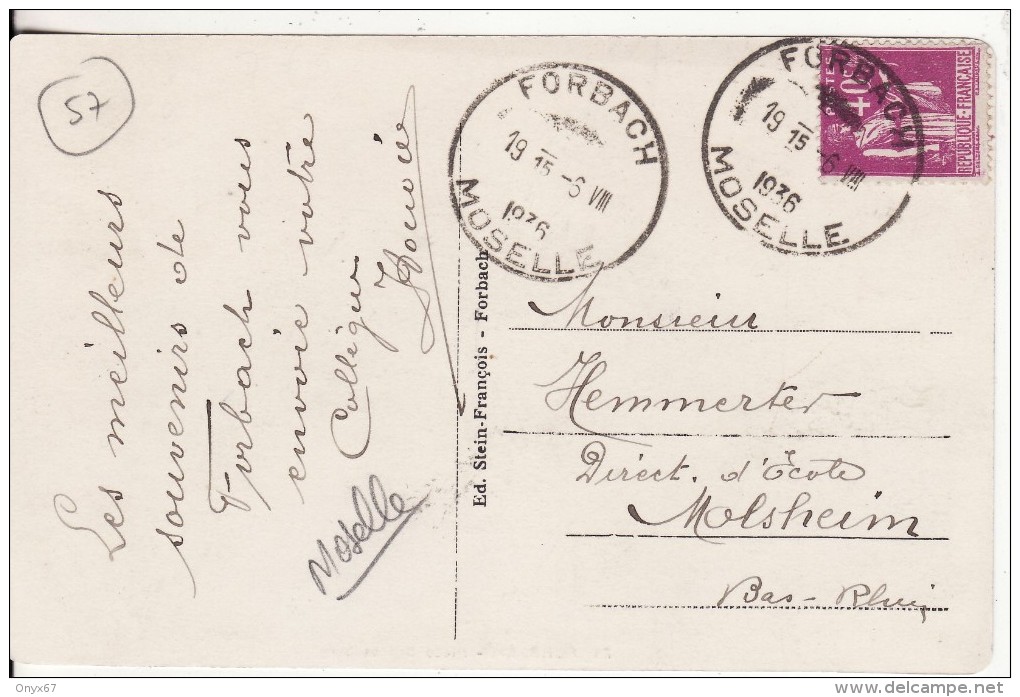 57
Les meilleurs
souvenirs de
Forbach vous
envoie votre
Collègue
Moselle
Ed. Stein-François - Forbach
FORBACH
19 15 -6 VIII
1936
MOSELLE
FORBACH
19 15 -6 VIII
1936
MOSELLE
POSTES
40
REPUBLIQUE·FRANÇAISE
Monsieur
Hemmerter
Direct. d'École
Molsheim
Bas-Rhin
Onyx67
delcampe.net